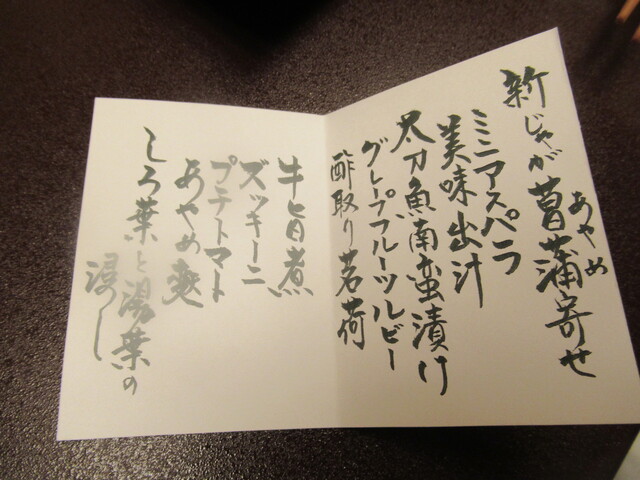 新じゃが菖蒲寄せ
あやめ
ミニアスパラ
美味出汁
太刀魚南蛮漬け
グレープフルーツルビー
酢取り茗荷
牛旨煮
ズッキーニ
プチトマト
あやめ麩
しろ菜と湯葉の
浸し